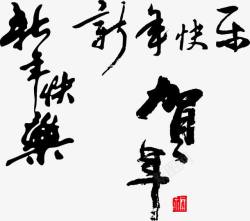 新年快樂
新年快乐
賀年